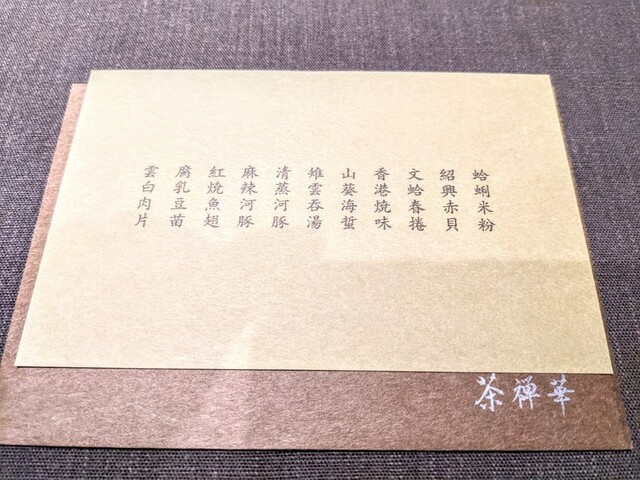 蛤蜊米粉
紹興赤貝
文蛤春捲
香港燒味
山葵海蜇
雉雲吞湯
清蒸河豚
麻辣河豚
紅燒魚翅
腐乳豆苗
雲白肉片
茶禅華